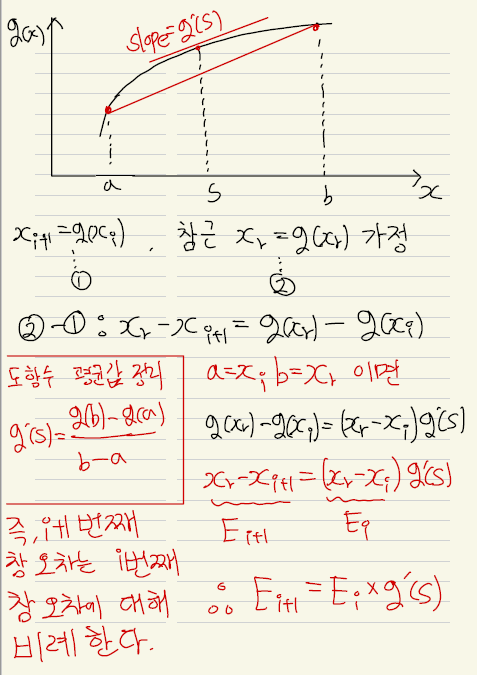 g(x)
slope=g'(s)
a s b x
x_{i+1}=g(x_i) , 참근 x_r=g(x_r) 가정
① ②
②-① : x_r-x_{i+1}=g(x_r)-g(x_i)
도함수 평균값 정리
g'(s)=\frac{g(b)-g(a)}{b-a}
a=x_i b=x_r 이면
g(x_r)-g(x_i)=(x_r-x_i)g'(s)
x_r-x_{i+1}=(x_r-x_i)g'(s)
E_{i+1} E_i
∴ E_{i+1}=E_i×g'(s)
즉, i+1 번째
참 오차는 i번째
참 오차에 대해
비례한다.